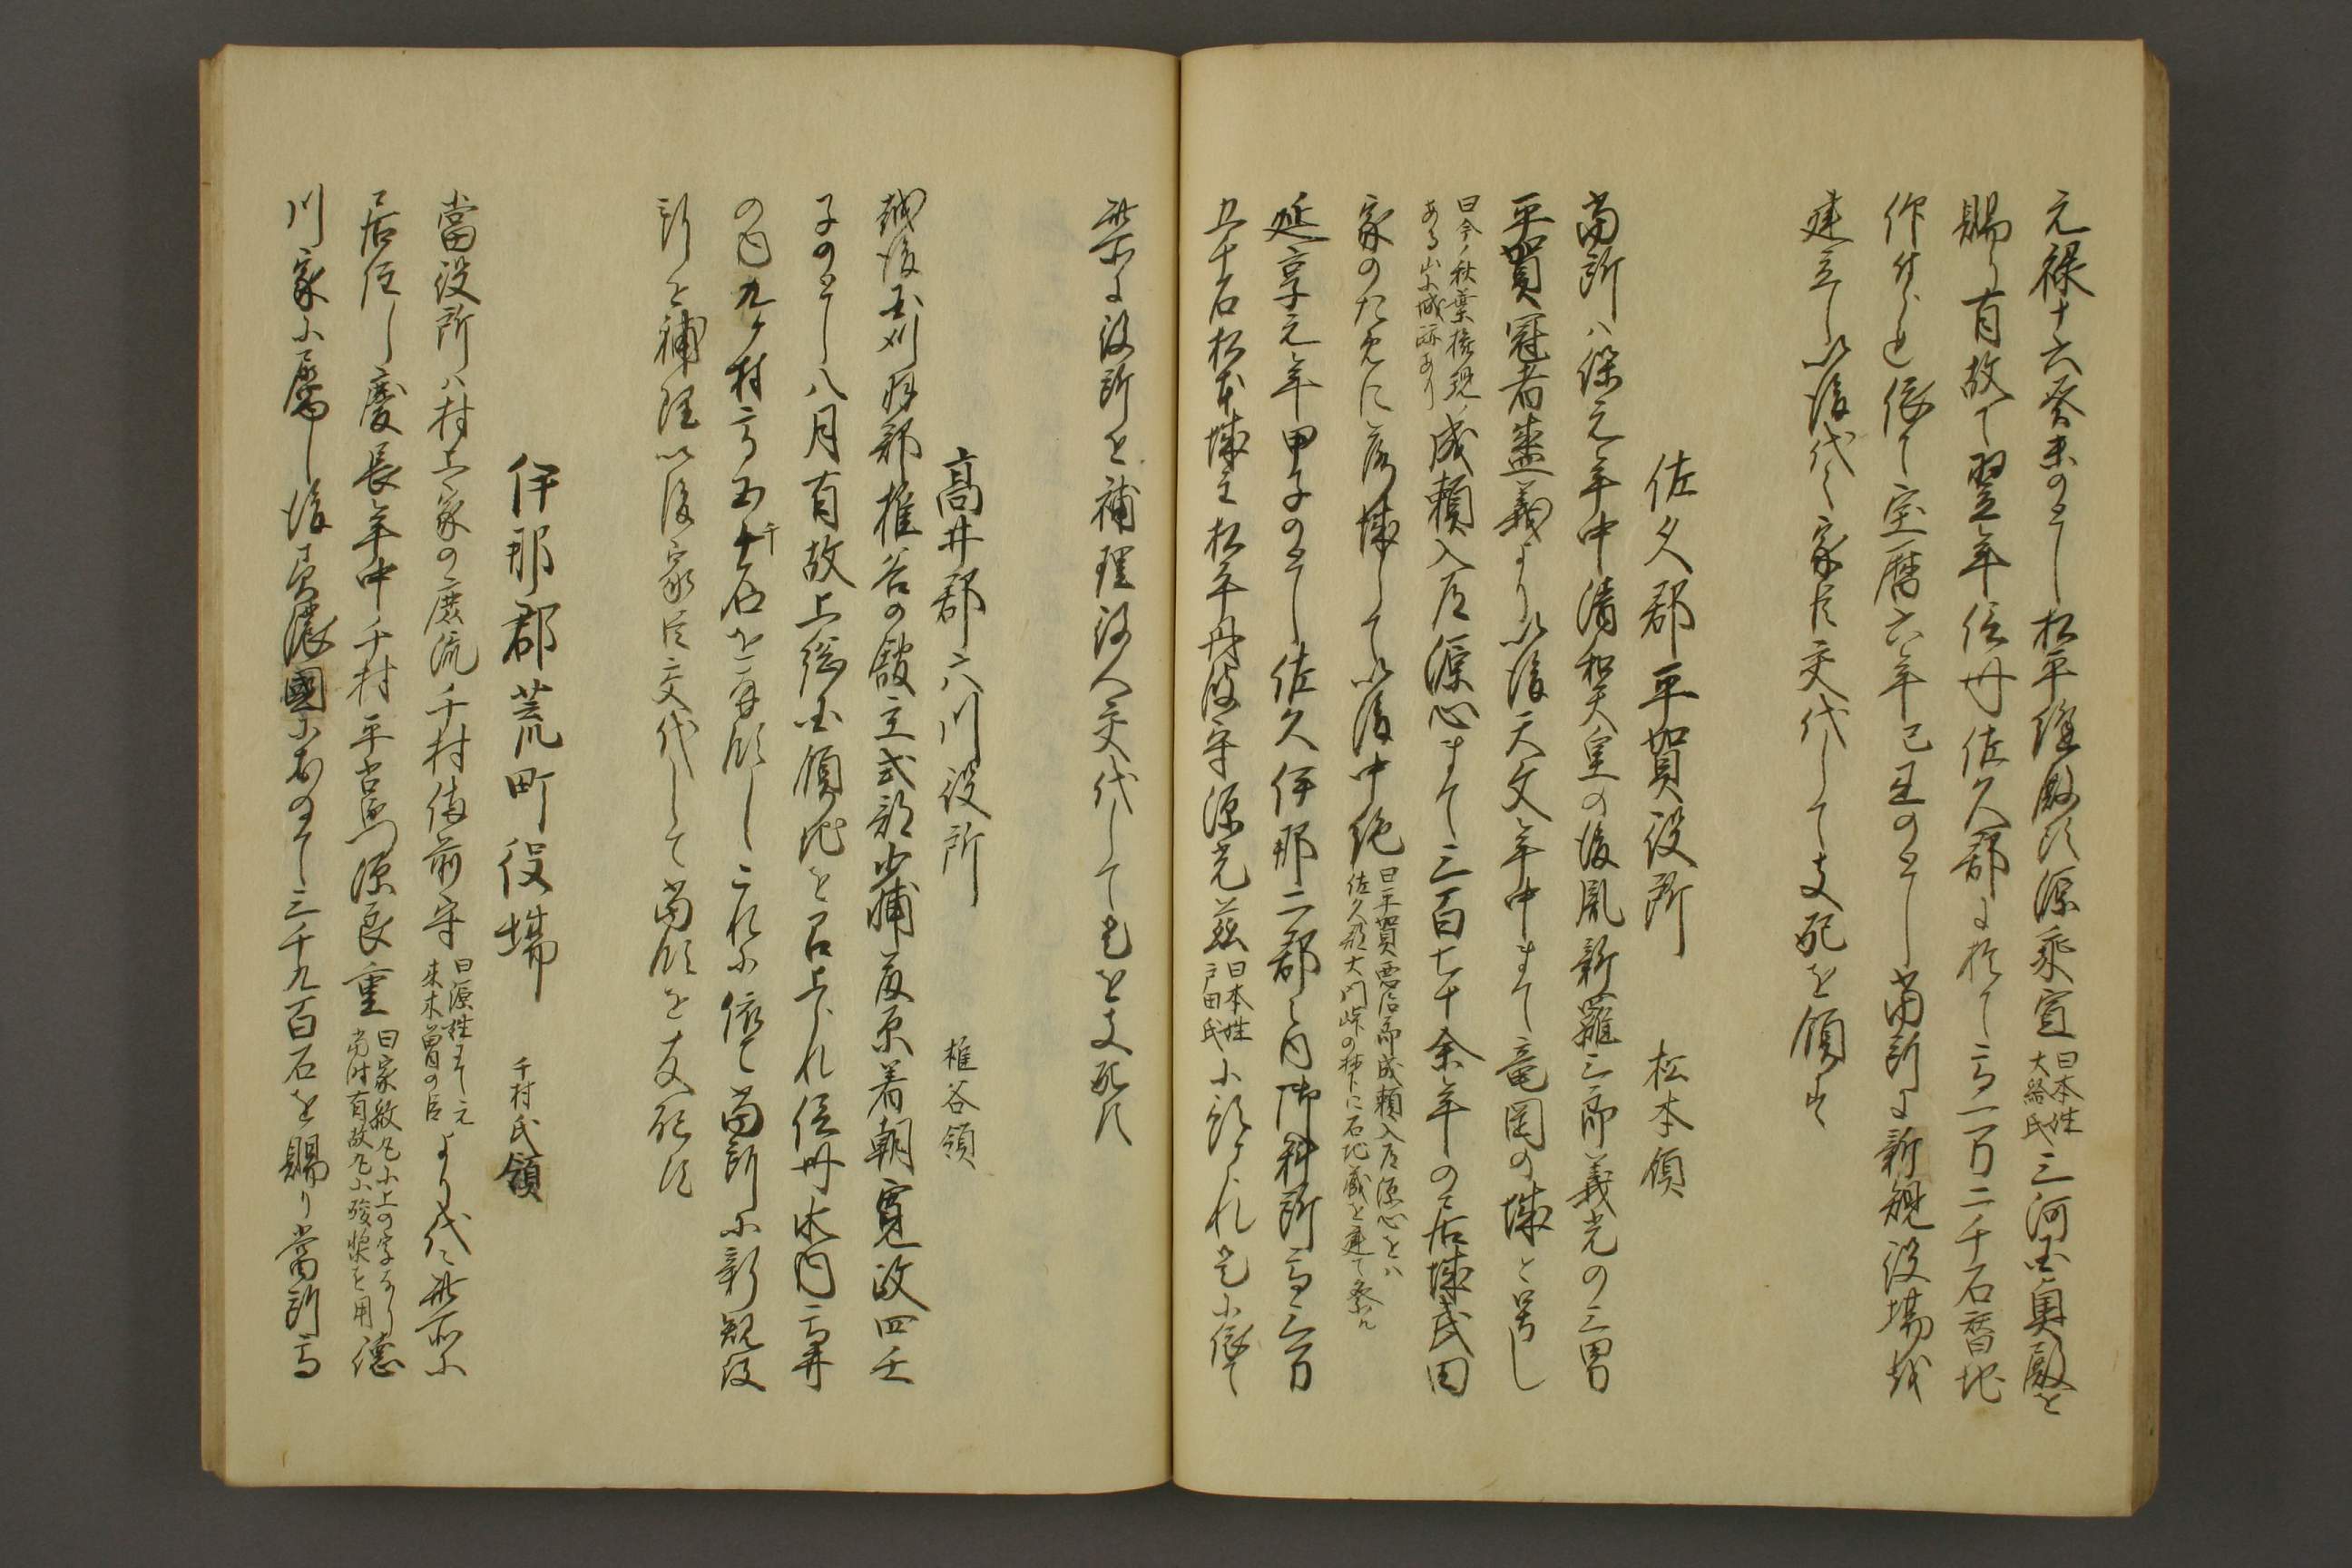 元禄十六癸未のとし松平縫殿頭源乗宣
曰本姓
大給氏
三河国奥殿を
賜り有故て翌年信州佐久郡に於て高一万二千石替地
仰付られ依て宝暦六年のとし当所に新規役場越
建立し以後代々家臣交代して支配を領す
佐久郡平賀役所　松本領
当所ハ保元年中清和天皇の後胤新羅三郎義光の三男
平賀冠者盛義より以後天文年中まて竜岡の城と号し
曰今ノ秋葉権現ノ
ある山城跡あり
成頼入道源心まて三百七十余年の居城武田
家のために落城して以後中絶
曰平賀悪治郎成頼入道源心をハ
佐久郡大門峠の梺に石地蔵を建て祭ル
延享元年甲子のとし佐久伊那二郡之内御料所高六万
五千石松本城主松平丹波守源光慈
曰本姓
戸田氏
に預られ是に依て
此所に役所を補理役人交代して是を支配す
高井郡六川役所　椎谷領
越後国刈羽郡椎谷の館主式部少輔藤原著朝寛政四壬
子のとし八月有故上総国領地を召上られ信州水内高井
の内九ケ村高五千石を宛領しこれに依て当所に新規役
所を補理以後家臣交代して当領を支配す
伊那郡荒町役場　千村氏領
當役所ハ村上家の庶流千村備前守
曰源姓にて元
来木曽の臣
より代々此所に
居住し慶長年中千村平右衛門源良重
曰家紋丸に上の字なり
当時有故丸に酸漿を用
徳
川家に属し後美濃國におゐて三千九百石を賜り當所高